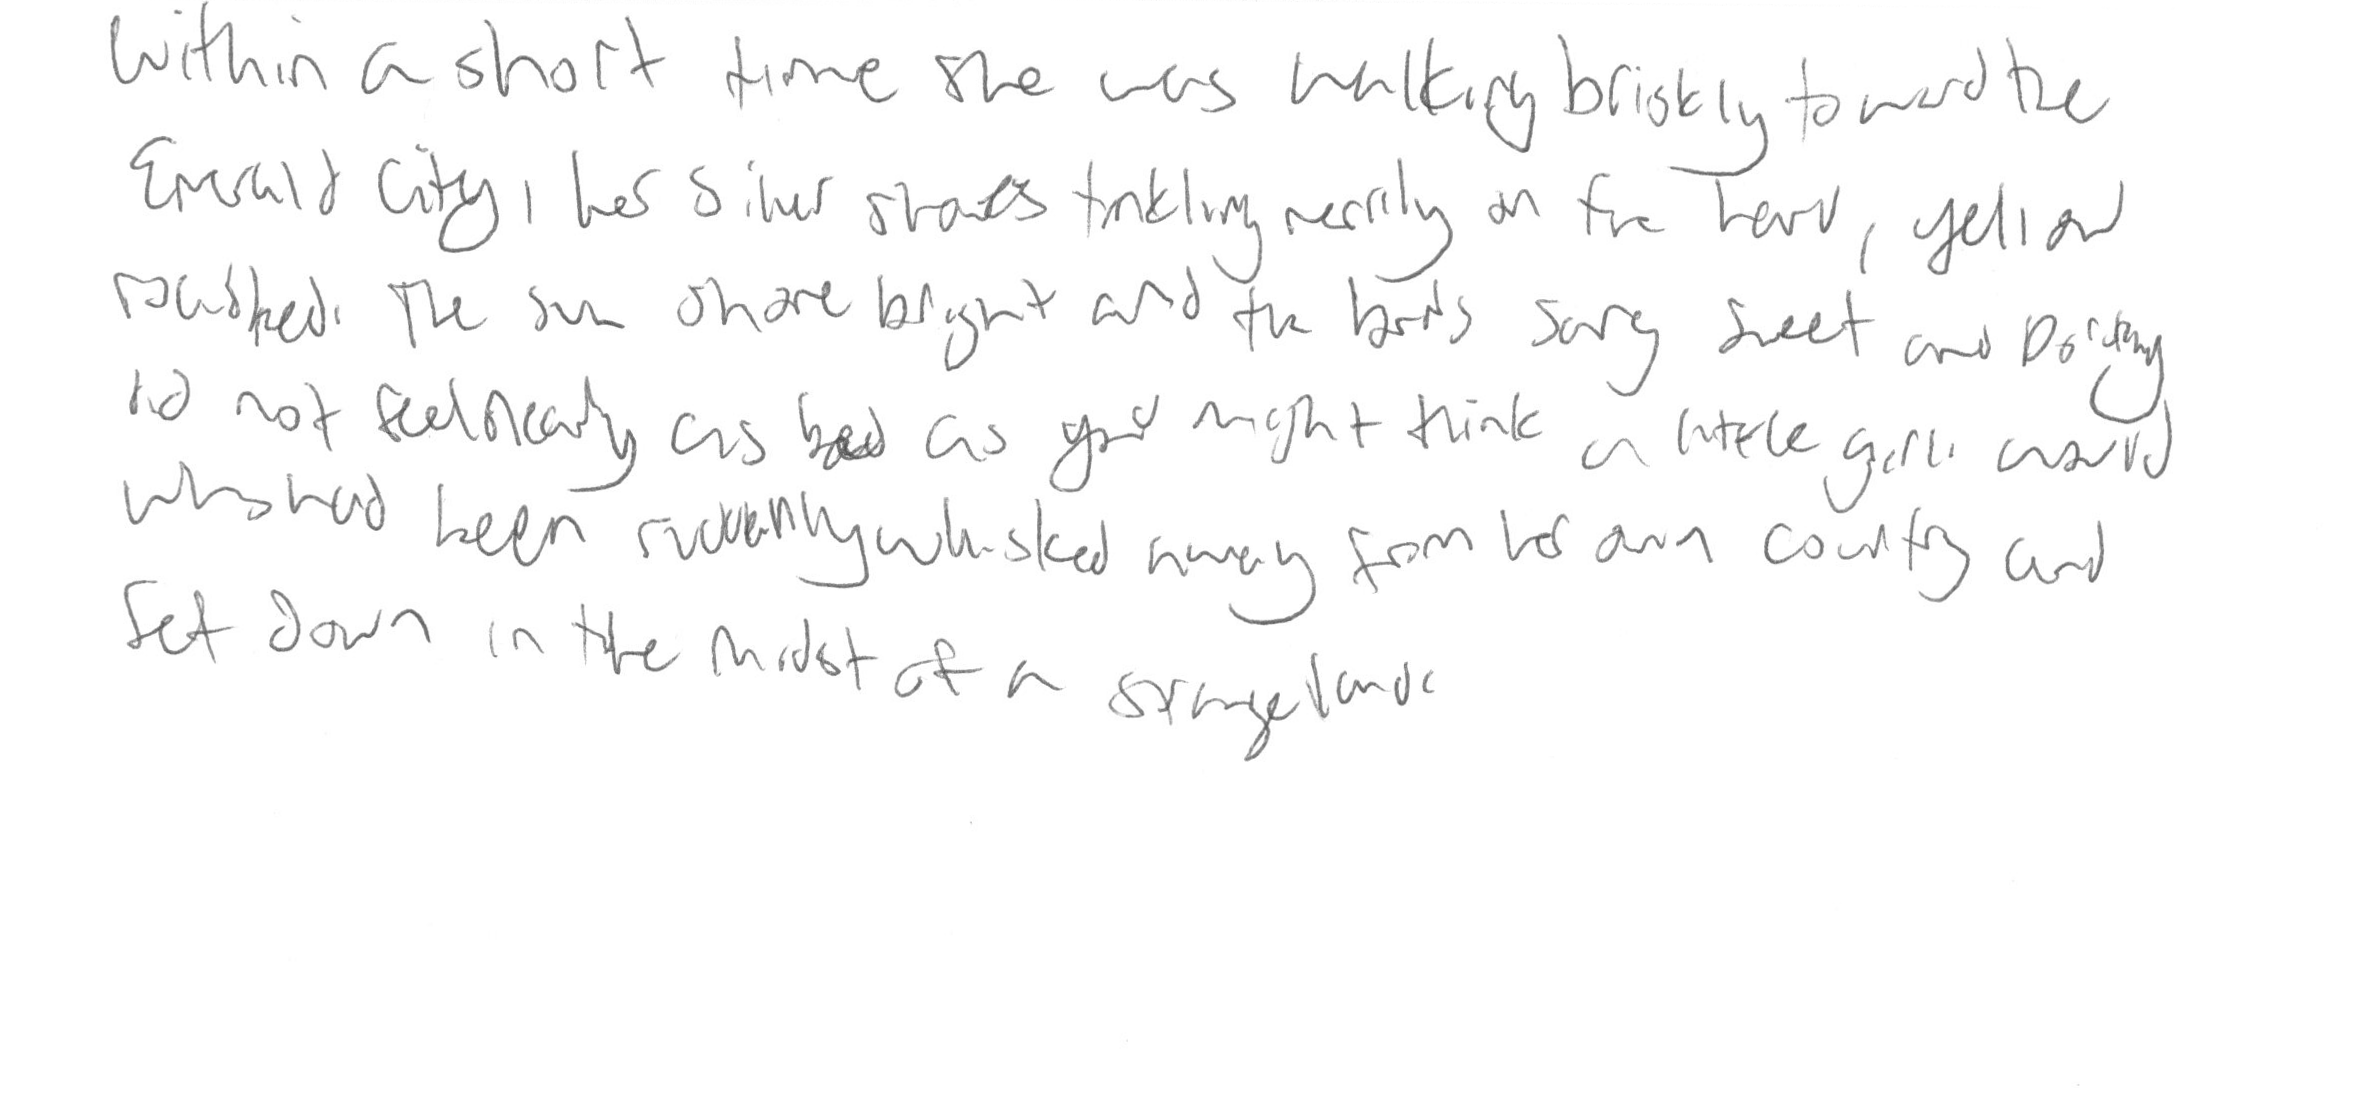 Within a short time she was walking briskly toward the
Emerald City, her Silver shoes tinkling merrily on the hard, yellow
roadbed. The sun shone bright and the birds sang sweet and Dorothy
did not feel nearly as bad as you might think a little girl would
who had been suddenly whisked away from her own country and
set down in the midst of a strange land.